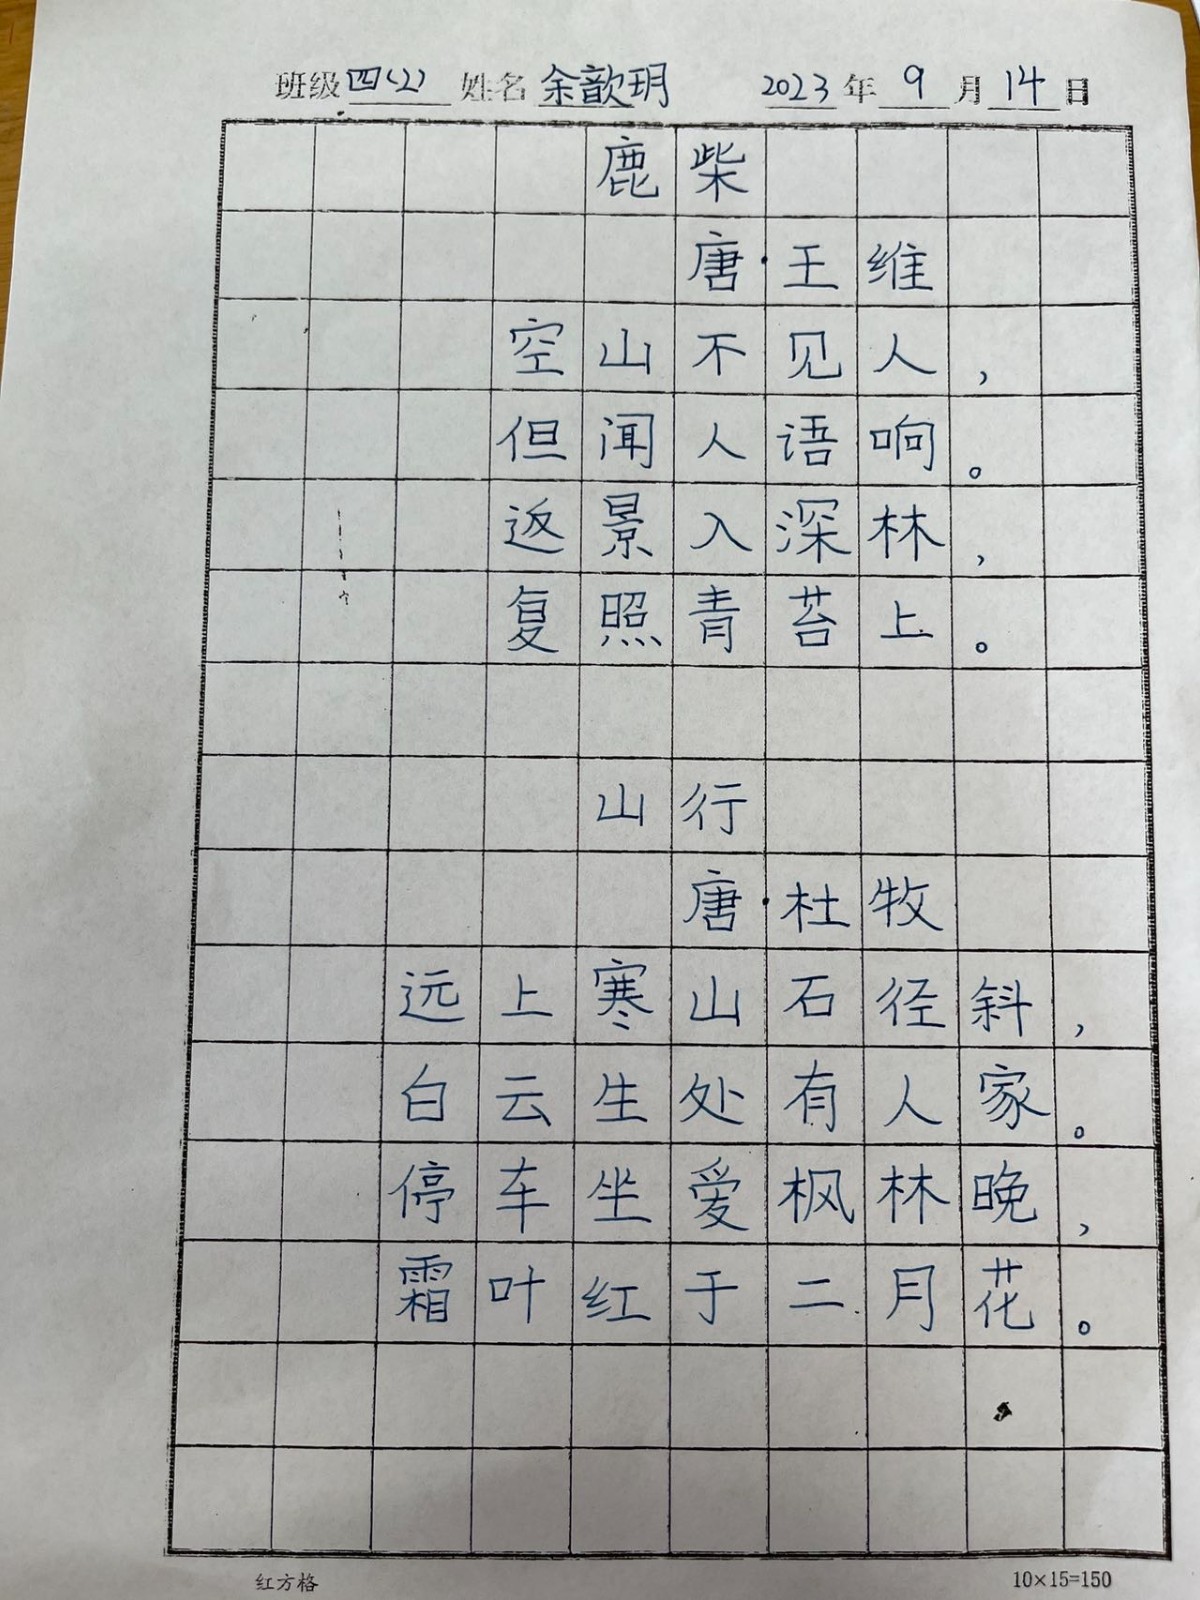 班级 四(2) 姓名 余歆玥 2023 年 9 月 14 日
鹿柴
唐·王维
空山不见人，
但闻人语响。
返景入深林，
复照青苔上。
山行
唐·杜牧
远上寒山石径斜，
白云生处有人家。
停车坐爱枫林晚，
霜叶红于二月花。
红方格 10×15=150